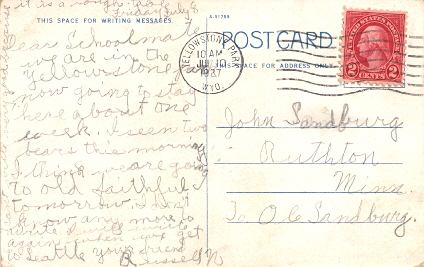 it is a rough
THIS SPACE FOR WRITING MESSAGES
July 9
A-91799
POSTCARD
THIS SPACE FOR ADDRESS ONLY
YELLOWSTONE PARK
10 AM
JUL 10
1937
WYO.
UNITED STATES POSTAGE
2 CENTS 2
Dear Schoolmate
we are in the
Yellowstone Park
now going to stay
here about one
week. I seen two
bears this morning
I think we are going
to old faithful
tomorrow. I don't
know any more to
write I will write
again when we get
to Seattle your friend
Russell N
John Sandburg
Ruthton
Minn.
To O.C. Sandburg.